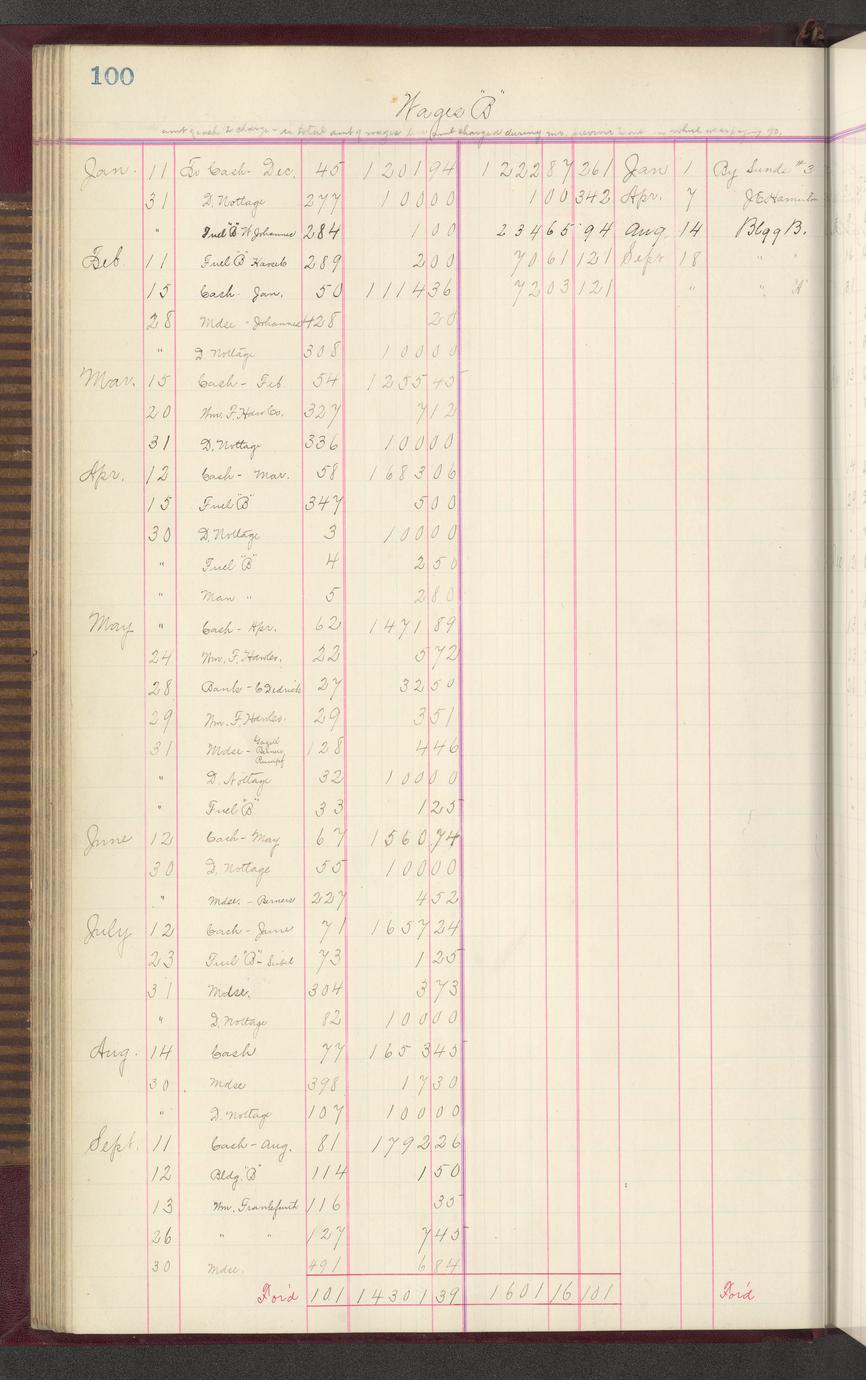 100
Wages "B"
Jan. 11 To Cash - Dec. 45 1201 94 1222 87 261 Jan 1 By Sunds #3
31 D. Nottage 277 100 00 100 342 Apr. 7 " J.E. Hamilton
" Fuel "B" W Johannes 284 1 00 2346 5 94 Aug. 14 Bldg B.
Feb. 11 Fuel "B" 289 2 00 70 61 121 Sept 18 " "
15 Cash - Jan. 50 1114 36 72 03 121 " " "A"
28 Mdse - Johannes 428 20
" D. Nottage 308 100 00
Mar. 15 Cash - Feb. 54 1255 45
20 Wm. F. Co. 327 7 12
31 D. Nottage 336 100 00
Apr. 12 Cash - Mar. 58 1683 06
15 Fuel "B" 347 5 00
30 D. Nottage 3 100 00
" Fuel "B" 4 2 50
" Man " 5 2 80
May " Cash - Apr. 62 1471 89
24 Wm. F. 22 5 72
28 Bank - C Dedrick 27 32 50
29 Wm. F. 29 3 51
31 Mdse - 128 4 46
" D. Nottage 32 100 00
" Fuel "B" 33 1 25
June 12 Cash - May 67 1560 74
30 D. Nottage 55 100 00
" Mdse. - Berners 227 4 52
July 12 Cash - June 71 1657 24
23 Fuel "B" - 73 1 25
31 Mdse. 304 3 73
" D. Nottage 82 100 00
Aug. 14 Cash 77 1653 45
30 Mdse 398 17 30
" D. Nottage 107 100 00
Sept. 11 Cash - Aug. 81 1792 26
12 Bldg. "B" 114 1 50
13 Wm. Frankfurth 116 35
26 " " 127 7 45
30 Mdse. 491 6 84
For'd 101 14301 39 1601 16 101 For'd